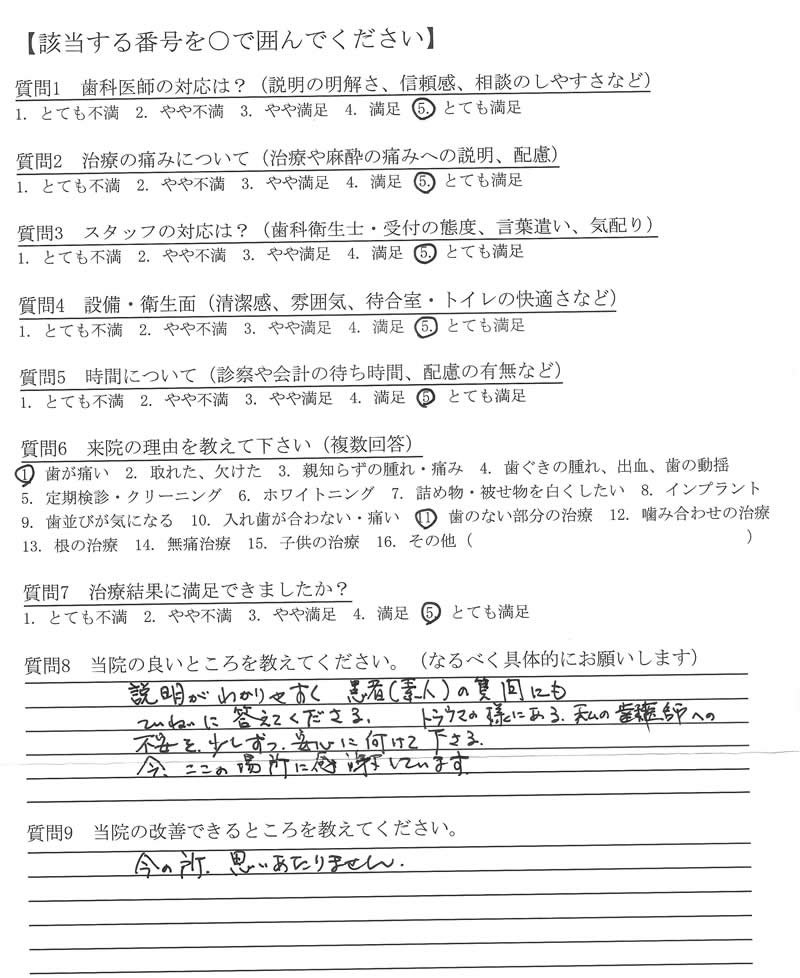 【該当する番号を○で囲んでください】
質問1 歯科医師の対応は？（説明の明解さ、信頼感、相談のしやすさなど）
1. とても不満 2. やや不満 3. やや満足 4. 満足 5. とても満足
質問2 治療の痛みについて（治療や麻酔の痛みへの説明、配慮）
1. とても不満 2. やや不満 3. やや満足 4. 満足 5. とても満足
質問3 スタッフの対応は？（歯科衛生士・受付の態度、言葉遣い、気配り）
1. とても不満 2. やや不満 3. やや満足 4. 満足 5. とても満足
質問4 設備・衛生面（清潔感、雰囲気、待合室・トイレの快適さなど）
1. とても不満 2. やや不満 3. やや満足 4. 満足 5. とても満足
質問5 時間について（診察や会計の待ち時間、配慮の有無など）
1. とても不満 2. やや不満 3. やや満足 4. 満足 5 とても満足
質問6 来院の理由を教えて下さい（複数回答）
1 歯が痛い 2. 取れた、欠けた 3. 親知らずの腫れ・痛み 4. 歯ぐきの腫れ、出血、歯の動揺
5. 定期検診・クリーニング 6. ホワイトニング 7. 詰め物・被せ物を白くしたい 8. インプラント
9. 歯並びが気になる 10. 入れ歯が合わない・痛い 11 歯のない部分の治療 12. 噛み合わせの治療
13. 根の治療 14. 無痛治療 15. 子供の治療 16. その他（ ）
質問7 治療結果に満足できましたか？
1. とても不満 2. やや不満 3. やや満足 4. 満足 5. とても満足
質問8 当院の良いところを教えてください。（なるべく具体的にお願いします）
説明がわかりやすく 患者(素人)の質問にも
ていねいに答えてくださる. トラウマの様にある、私の歯科医師への
不安を、少しずつ、安心に向けて下さる.
今、ここの場所に感謝しています.
質問9 当院の改善できるところを教えてください。
今の所、思いあたりません.